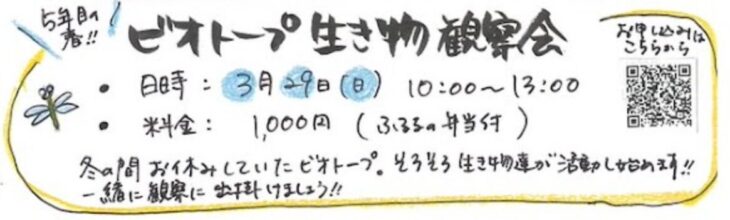 5年目の
春!!
ビオトープ 生き物 観察会
お申し込みは
こちらから
• 日時: 3月29日(日) 10:00〜13:00
• 料金: 1,000円 (ふるるの弁当付)
冬の間 お休みしていたビオトープ。そろそろ生き物達が活動し始めます!!
一緒に観察に出掛けましょう!!